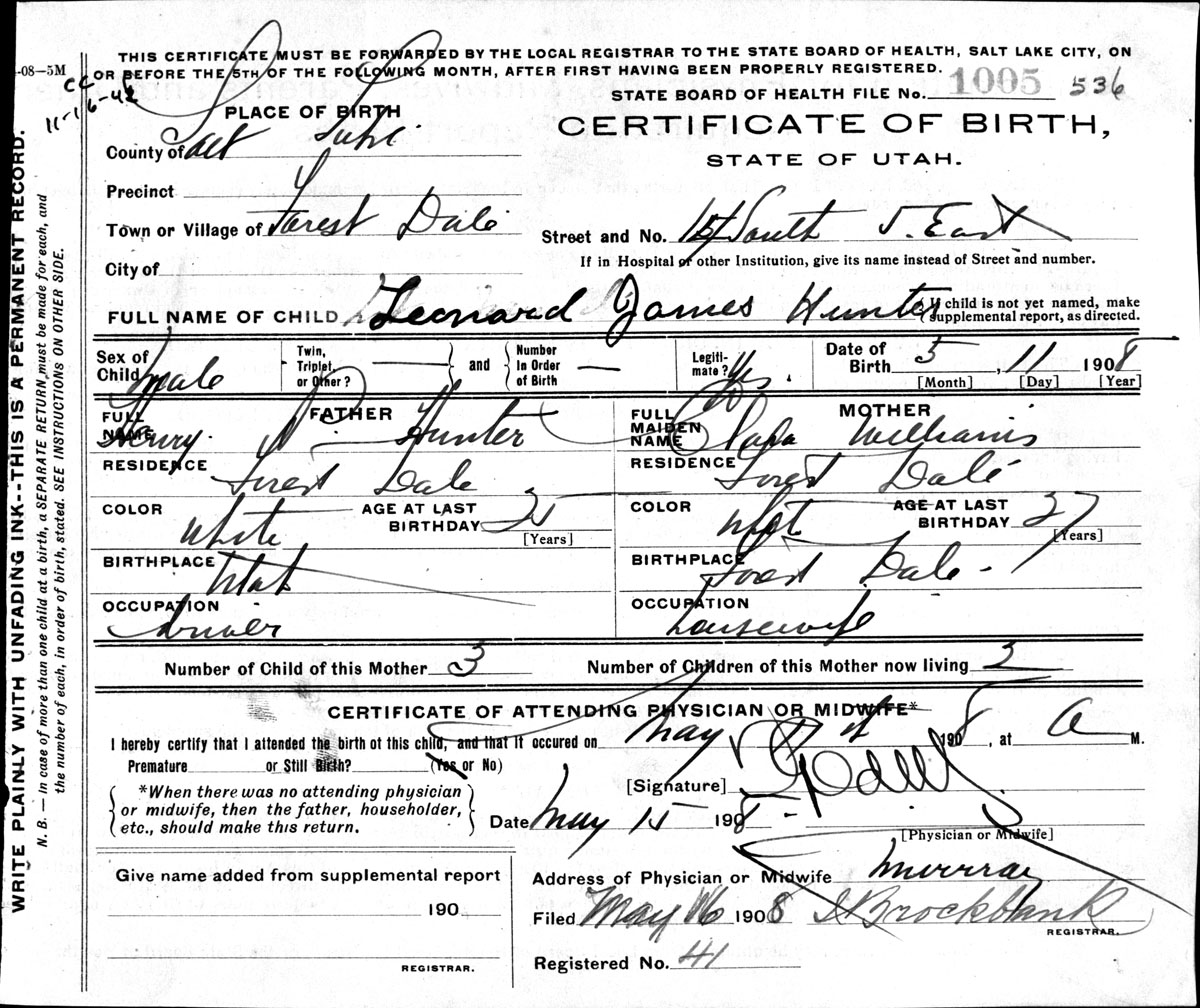 THIS CERTIFICATE MUST BE FORWARDED BY THE LOCAL REGISTRAR TO THE STATE BOARD OF HEALTH, SALT LAKE CITY, ON
OR BEFORE THE 5TH OF THE FOLLOWING MONTH, AFTER FIRST HAVING BEEN PROPERLY REGISTERED.
-08—5M
11-16-42
STATE BOARD OF HEALTH FILE No. 1005 536
PLACE OF BIRTH
CERTIFICATE OF BIRTH,
STATE OF UTAH.
County of Salt Lake
Precinct
Town or Village of Forest Dale
Street and No. South East
City of
If in Hospital or other Institution, give its name instead of Street and number.
FULL NAME OF CHILD Leonard James Hunter
(If child is not yet named, make supplemental report, as directed.
Sex of Child Male
Twin, Triplet, or Other? and Number In Order of Birth
Legitimate? Yes
Date of Birth 5, 11 1908
[Month] [Day] [Year]
FATHER
FULL NAME Henry Hunter
RESIDENCE Forest Dale
COLOR White
AGE AT LAST BIRTHDAY
[Years]
BIRTHPLACE Utah
OCCUPATION
MOTHER
FULL MAIDEN NAME Williams
RESIDENCE Forest Dale
COLOR
AGE AT LAST BIRTHDAY 27
[Years]
BIRTHPLACE Forest Dale
OCCUPATION housewife
Number of Child of this Mother 3
Number of Children of this Mother now living
CERTIFICATE OF ATTENDING PHYSICIAN OR MIDWIFE*
I hereby certify that I attended the birth of this child, and that it occured on May 1908, at A M.
Premature or Still Birth? (Yes or No)
[Signature]
*When there was no attending physician
or midwife, then the father, householder,
etc., should make this return.
Date May 15 1908
[Physician or Midwife]
Give name added from supplemental report
190
REGISTRAR.
Address of Physician or Midwife Murray
Filed May 16 1908 Brockbank
REGISTRAR.
Registered No. 41
WRITE PLAINLY WITH UNFADING INK--THIS IS A PERMANENT RECORD.
N. B.—In case of more than one child at a birth, a SEPARATE RETURN must be made for each, and
the number of each, in order of birth, stated. SEE INSTRUCTIONS ON OTHER SIDE.